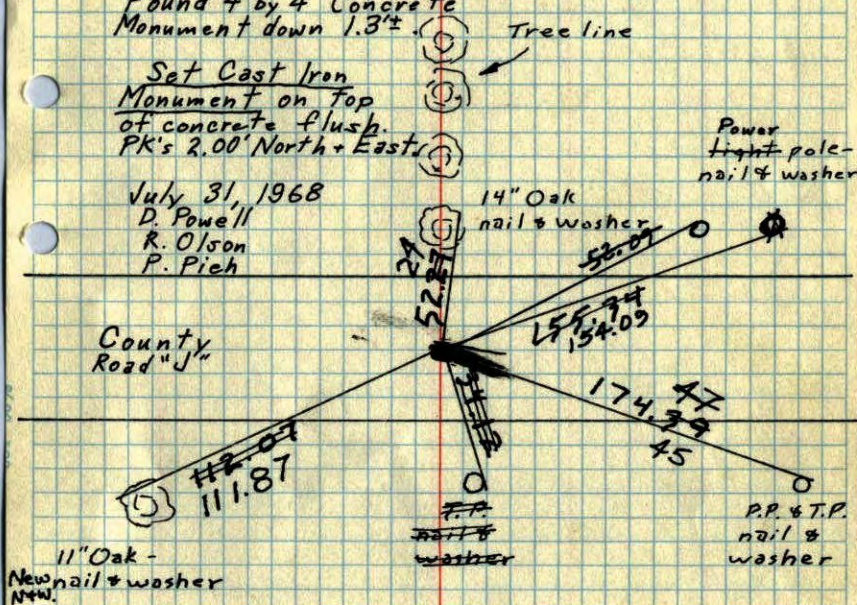 Found 4 by 4 Concrete
Monument down 1.3'±.
Tree line
Set Cast Iron
Monument on Top
of concrete flush.
PK's 2.00' North + East
July 31, 1968
D. Powell
R. Olson
P. Pieh
14" Oak
nail & washer
Power
Light pole-
nail & washer
24
52.27
52.09
155.34
154.09
County
Road "J"
34.12
47
174.39
45
112.07
111.87
11" Oak -
New nail & washer
N+W.
T.P.
nail &
washer
P.P. & T.P.
nail &
washer